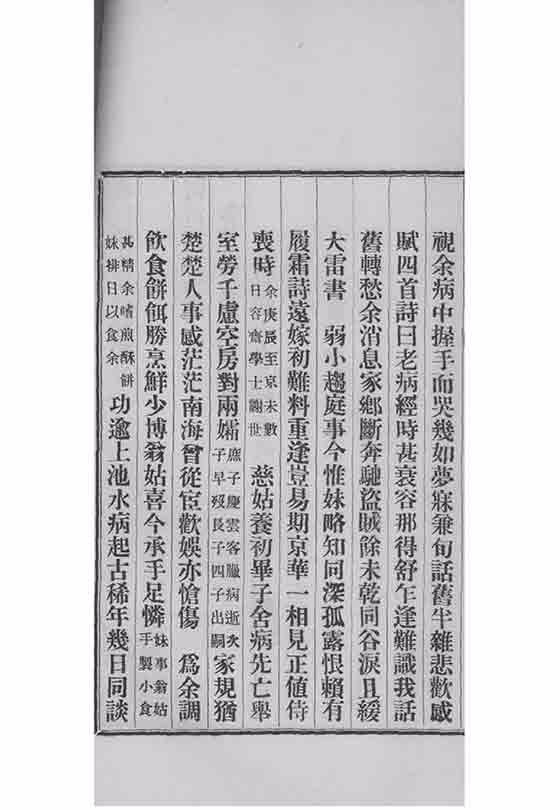 視余病中握手而哭幾如夢寐兼旬話舊半雜悲歡感
賦四首詩曰老病經時甚衰容那得舒乍逢難識我話
舊轉愁余消息家鄉斷奔馳盜賊餘未乾同谷淚且緩
大雷書　弱小趨庭事今惟妹略知同深孤露恨賴有
履霜詩遠嫁初難料重逢豈易期京華一相見正値侍
喪時余庚辰至京未數日容齋學士謝世　慈姑養初畢子舍病先亡舉
室勞千慮空房對兩孀庶子慶雲客臘病逝次子早歿長子四子出嗣家規猶
楚楚人事感茫茫南海曾從宦歡娛亦愴傷　爲余調
飮食餅餌勝烹鮮少博翁姑喜今承手足憐妹事翁姑手製小食
甚精余嗜煎酥餅妹排日以食余　功逾上池水病起古稀年幾日同談